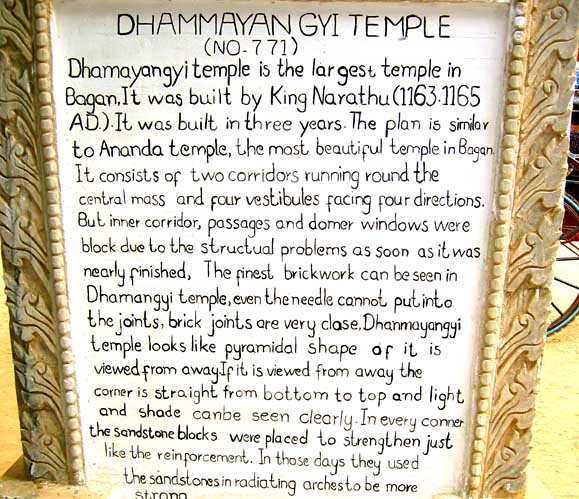 DHAMMAYAN GYI TEMPLE
(NO-771)
Dhamayangyi temple is the largest temple in
Bagan. It was built by King Narathu (1163-1165
AD.). It was built in three years. The plan is similar
to Ananda temple, the most beautiful temple in Bagan.
It consists of two corridors running round the
central mass and four vestibules facing four directions.
But inner corridor, passages and domer windows were
block due to the structual problems as soon as it was
nearly finished, The finest brickwork can be seen in
Dhamangyi temple, even the needle cannot put into
the joints, brick joints are very close. Dhanmayangyi
temple looks like pyramidal shape of it is
viewed from away. If it is viewed from away the
corner is straight from bottom to top and light
and shade canbe seen clearly. In every conner
the sandstone blocks were placed to strengthen just
like the reinforcement. In those days they used
the sandstones in radiating arches to be more
strong